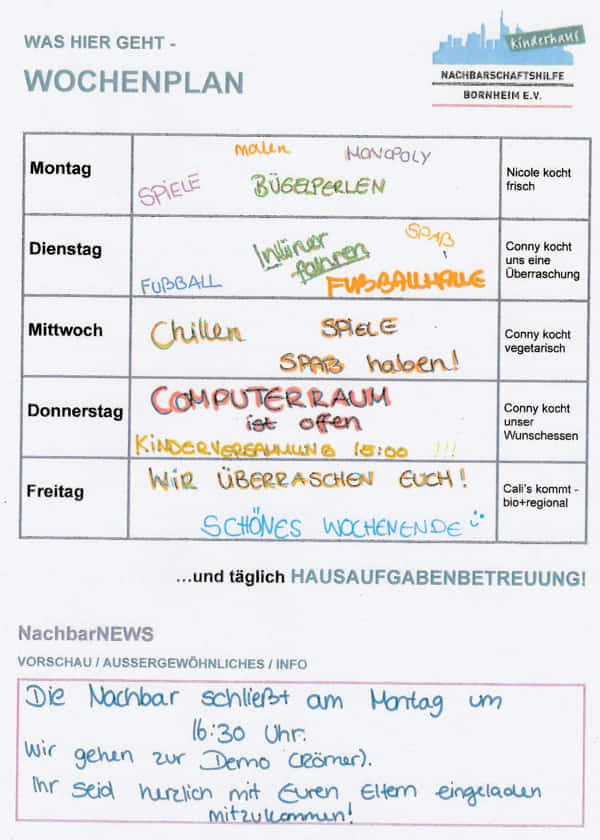 WAS HIER GEHT -
WOCHENPLAN
kinderhaus
NACHBARSCHAFTSHILFE
BORNHEIM E.V.
Montag
malen
MONOPOLY
SPIELE
BÜGELPERLEN
Nicole kocht
frisch
Dienstag
Inliner
fahren
SPAß
!
FUßBALL
FUßBALLHALLE
Conny kocht
uns eine
Überraschung
Mittwoch
Chillen
SPiELE
SPAß haben!
Conny kocht
vegetarisch
Donnerstag
COMPUTERRAUM
ist offen
KiNDERVERSAMMLUNG 15:00 !!!
Conny kocht
unser
Wunschessen
Freitag
WiR ÜBERRASCHEN EUCH!
SCHÖNES WOCHENENDE
Cali's kommt -
bio+regional
...und täglich HAUSAUFGABENBETREUUNG!
NachbarNEWS
VORSCHAU / AUSSERGEWÖHNLICHES / INFO
Die Nachbar schließt am Montag um
16:30 Uhr.
Wir gehen zur Demo (Römer).
Ihr seid herzlich mit Euren Eltern eingeladen
mitzukommen!